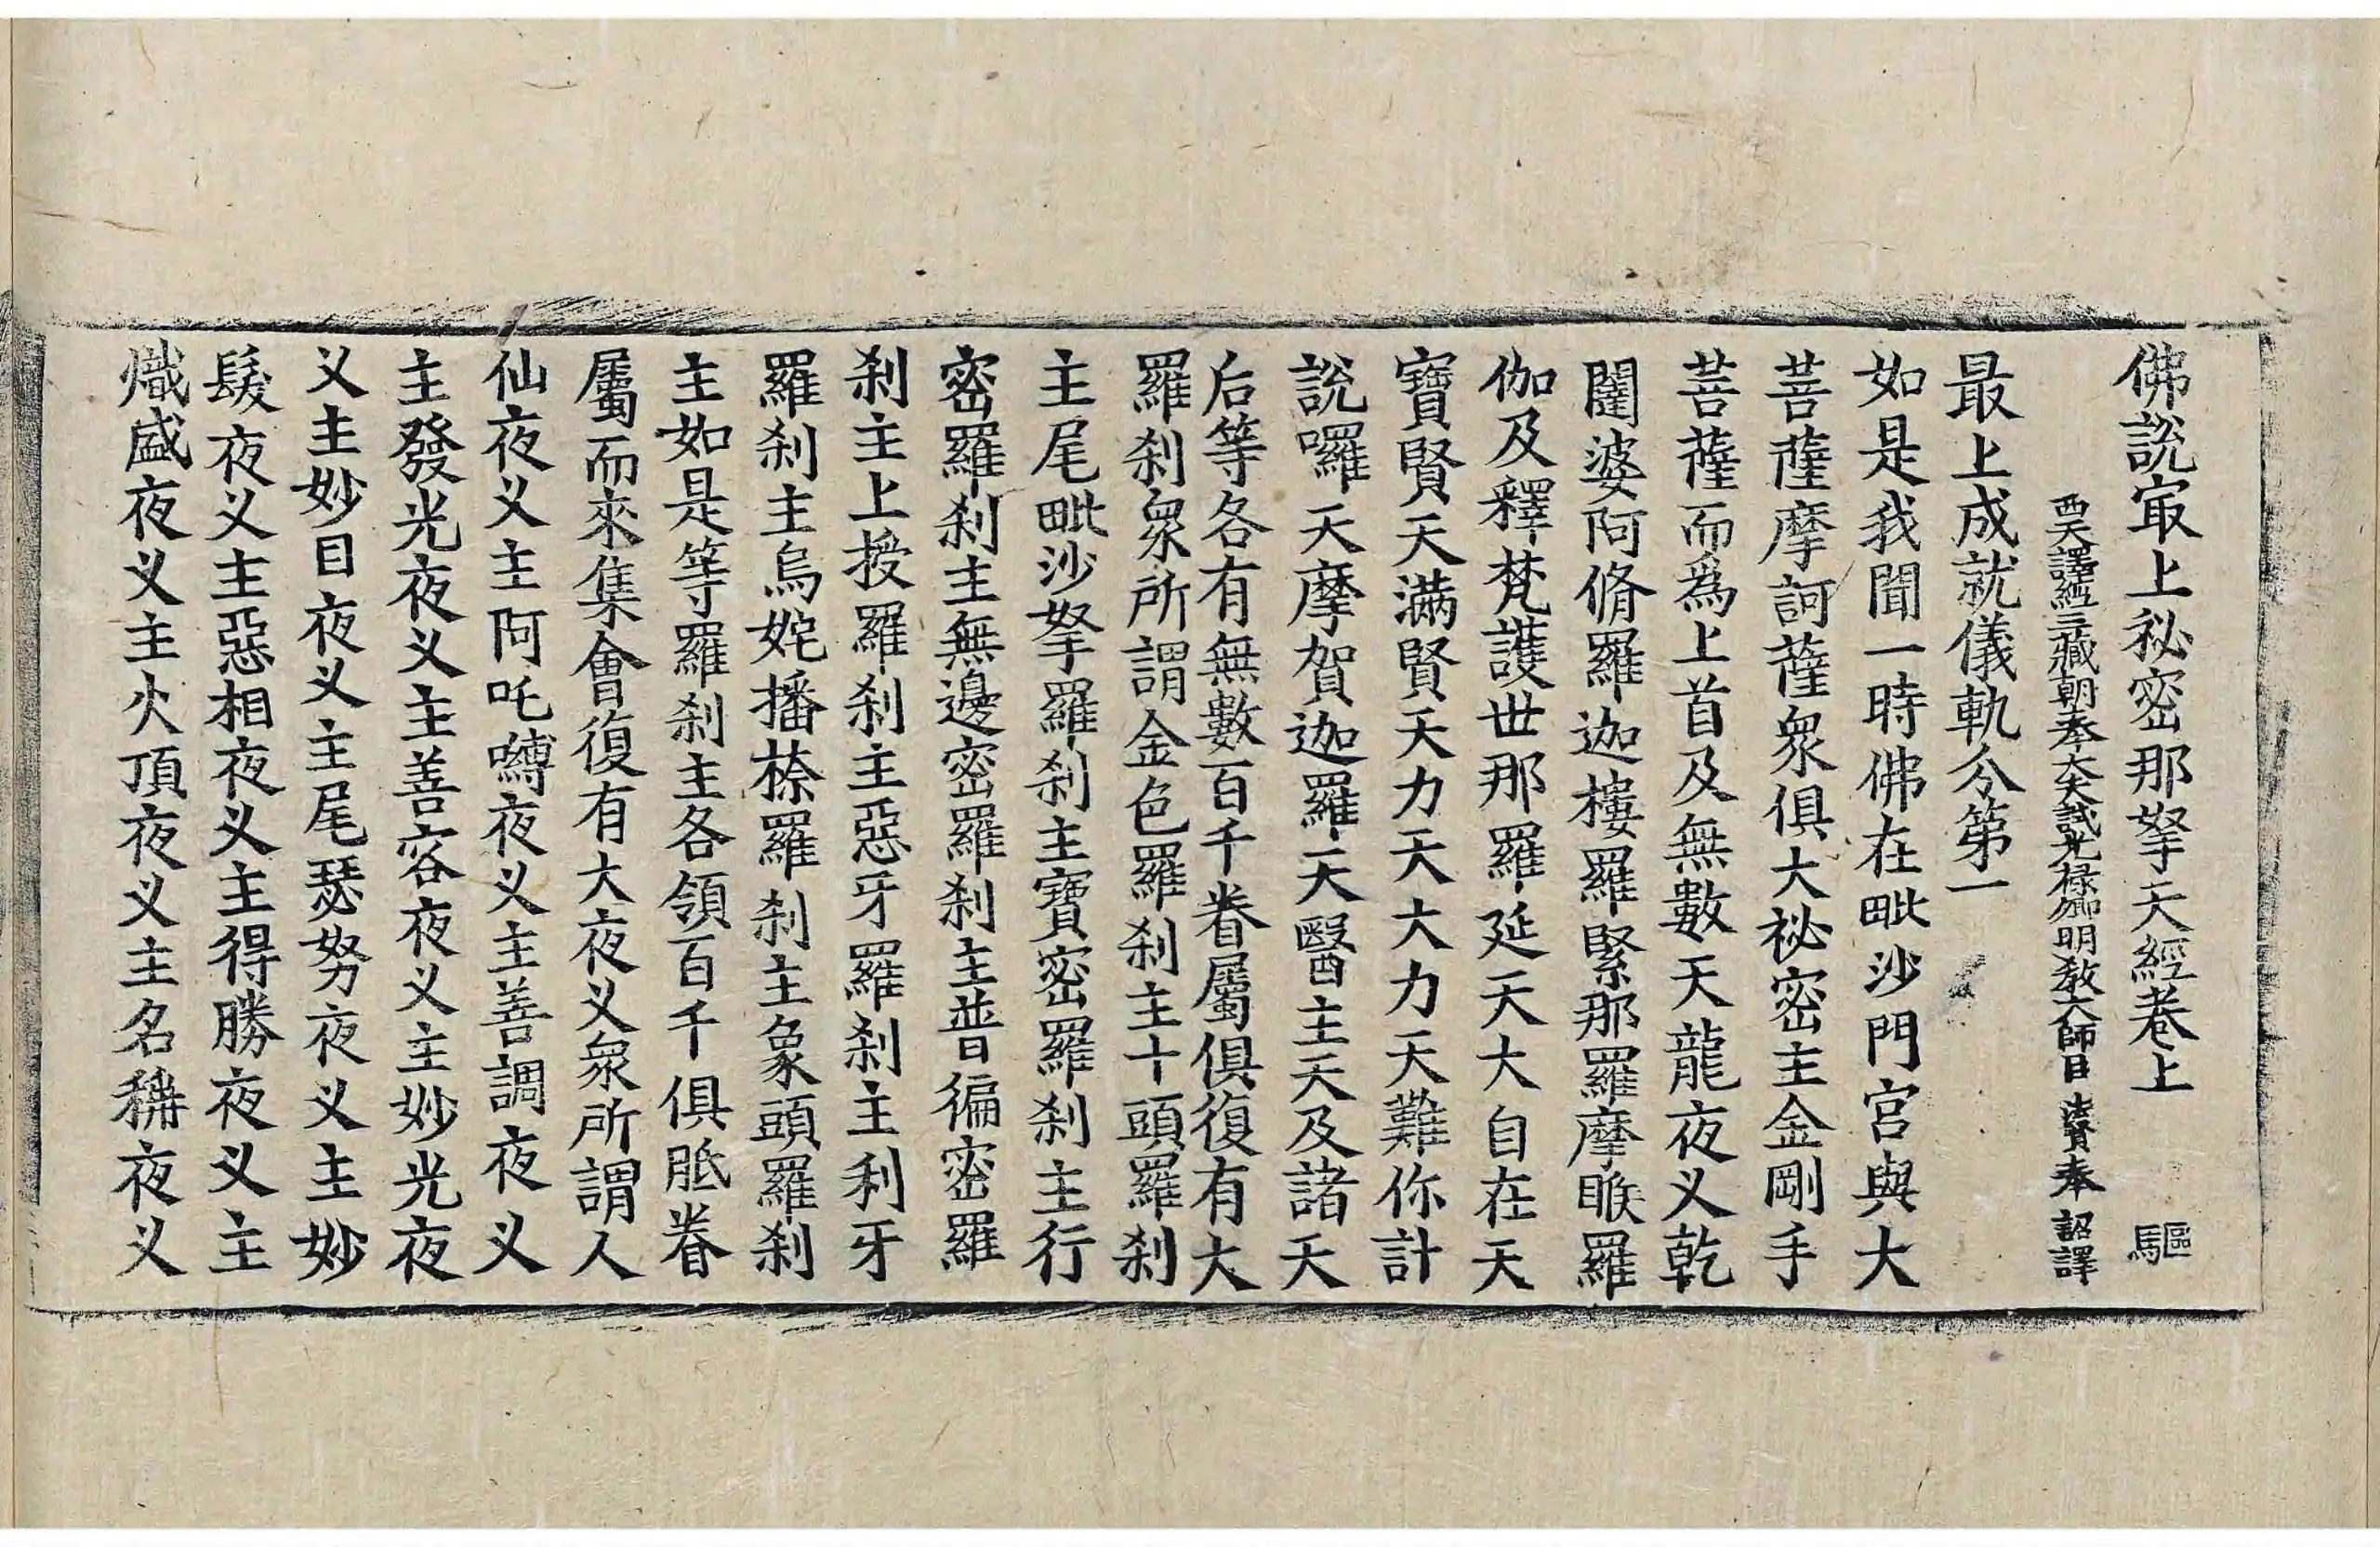 佛說㝡上祕密那拏天經卷上 驅
西天譯經三藏朝奉大夫試光祿卿明教大師臣法賢奉 詔譯
最上成就儀軌分第一
如是我聞一時佛在毗沙門宮與大
菩薩摩訶薩眾俱大祕密主金剛手
菩薩而爲上首及無數天龍夜义乾
闥婆阿脩羅迦樓羅緊那羅摩睺羅
伽及釋梵護世那羅延天大自在天
寶賢天滿賢天力天大力天難你計
說囉天摩賀迦羅天醫主天及諸天
后等各有無數百千眷屬俱復有大
羅刹眾所謂金色羅刹主十頭羅刹
主尾毗沙拏羅刹主寶密羅刹主行
密羅刹主無邊密羅刹主普徧密羅
刹主上授羅刹主惡牙羅刹主利牙
羅刹主烏姹播捺羅刹主象頭羅刹
主如是等羅刹主各領百千俱胝眷
屬而來集會復有大夜义眾所謂人
仙夜义主阿吒嚩夜义主善調夜义
主發光夜义主善容夜义主妙光夜
义主妙目夜义主尾瑟努夜义主妙
髮夜义主惡相夜义主得勝夜义主
熾盛夜义主火頂夜义主名稱夜义